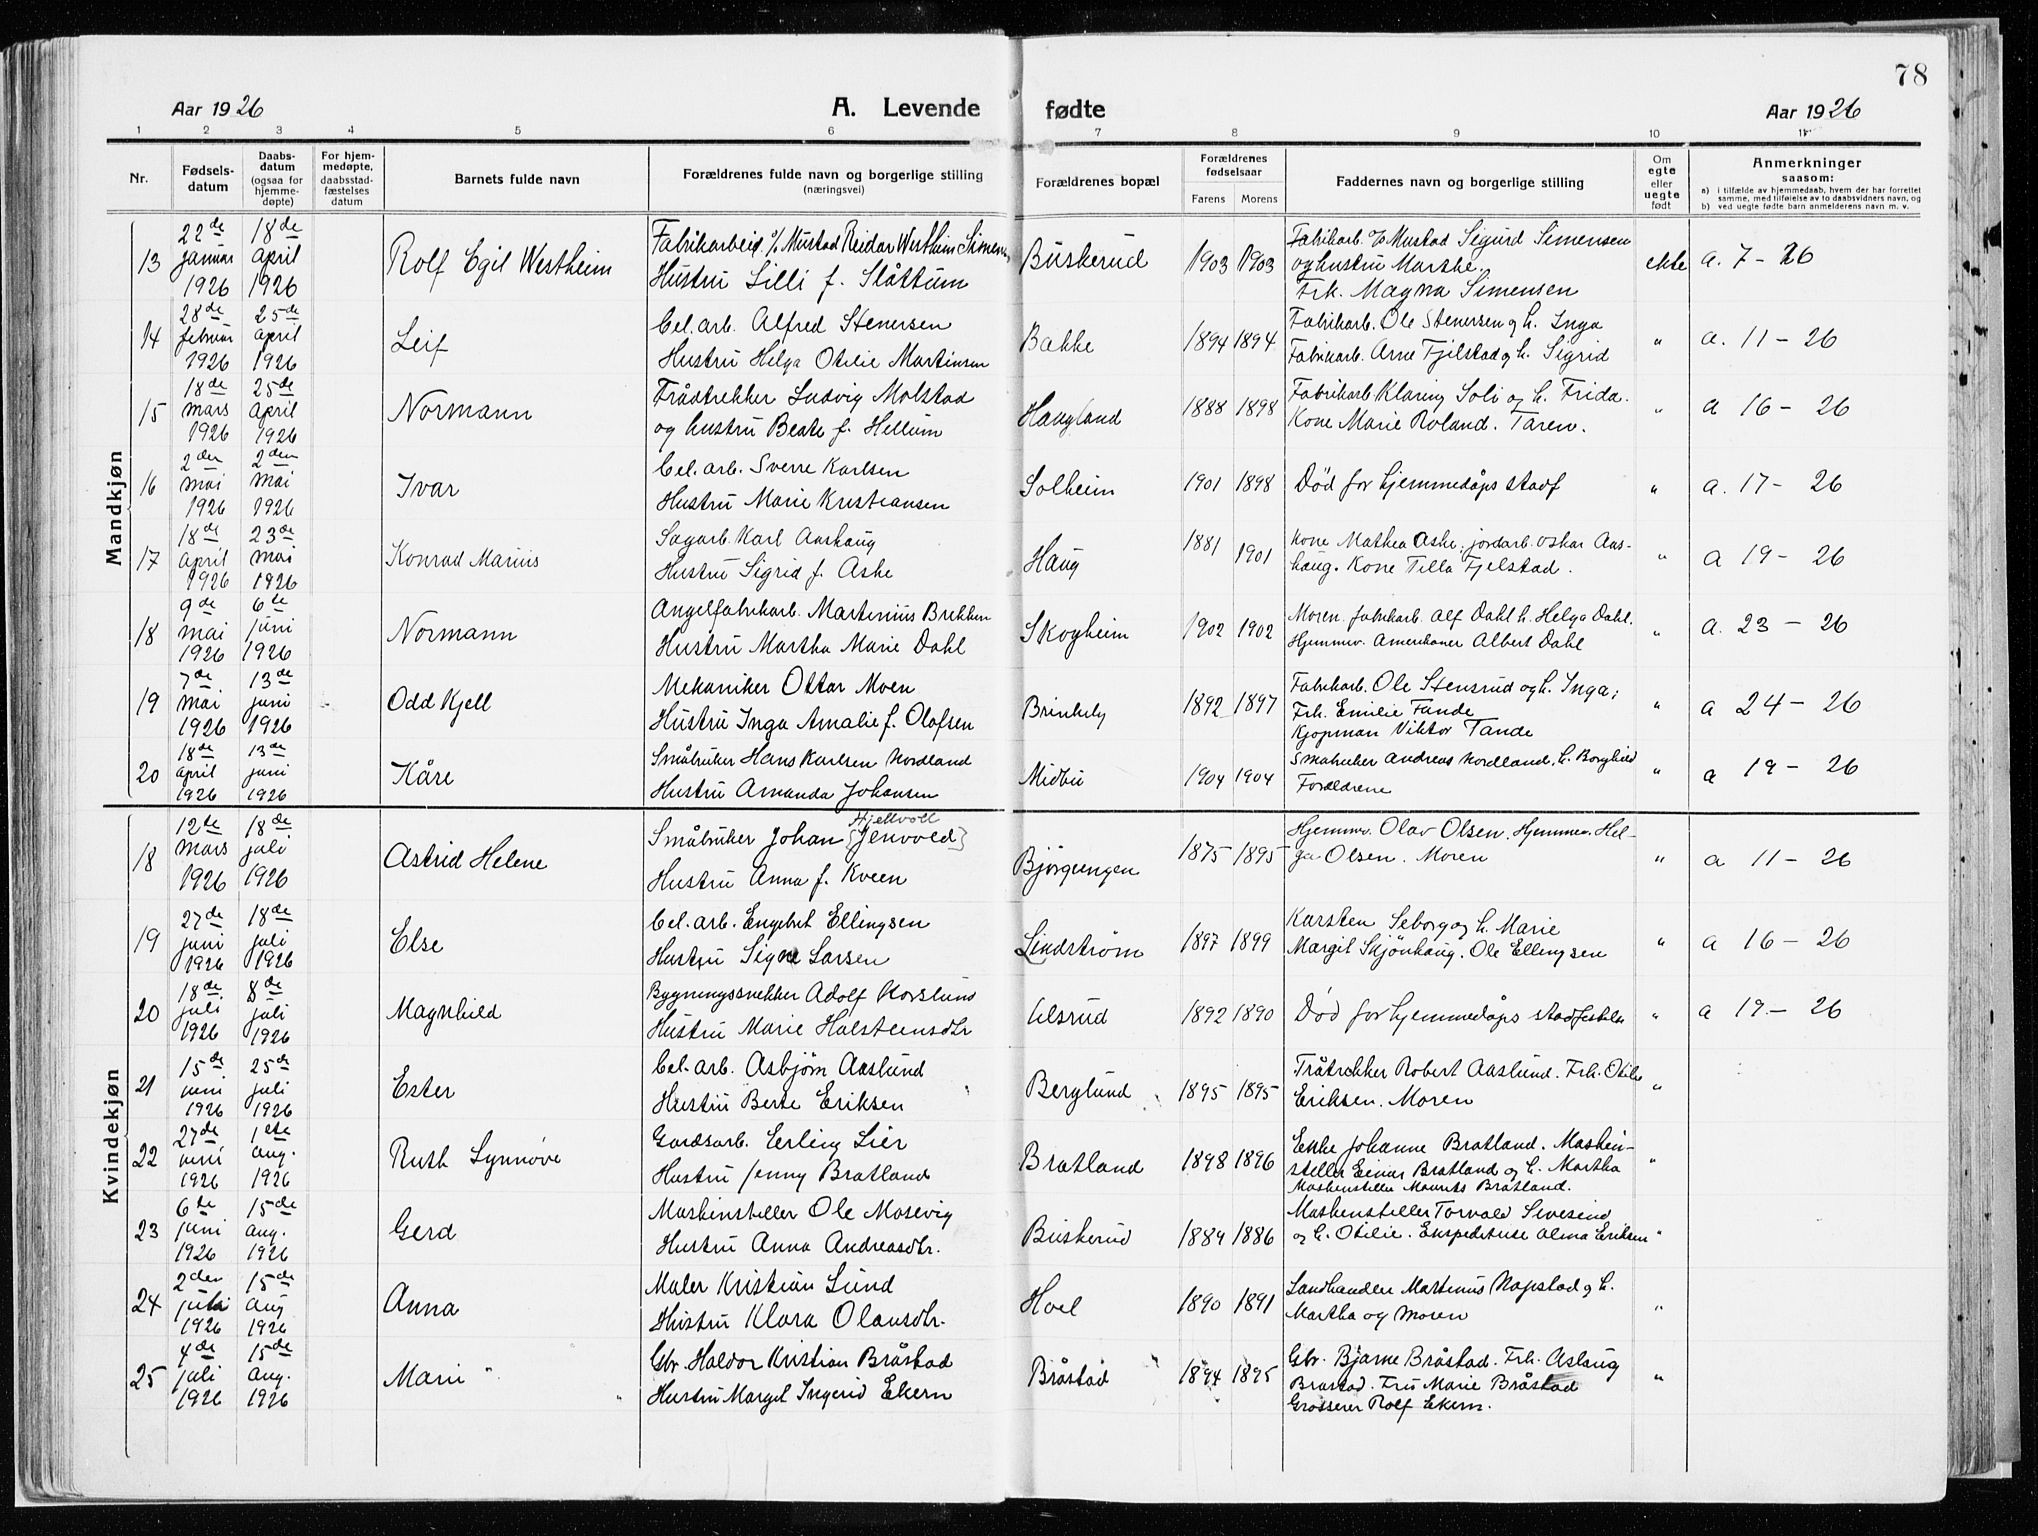 78
Aar 1926 A. Levende fødte Aar 1926
1 2 3 4 5 6 7 8 9 10 11
Nr. Fødsels-datum Daabs-datum (ogsaa for hjemme-døpte) For hjem-medøpte, daabsstad-fæstelses datum Barnets fulde navn Forældrenes fulde navn og borgerlige stilling (næringsvei) Forældrenes bopæl Forældrenes fødselsaar Farens Morens Faddernes navn og borgerlige stilling Om egte eller uegte født Anmerkninger saasom:
a) i tilfælde av hjemmedaab, hvem der har forrettet samme, med tilføielse av to daabsvidners navn, og
b) ved uegte fødte barn anmelderens navn m. v.
Mandkjøn
13 22de januar 1926 18de april 1926 Rolf Egil Westheim Fabrikarbeid. o/ Mustad Reidar Westheim Simensen
Hustru Lilli f. Slåttum Buskerud 1903 1903 Fabrikarb. o/ Mustad Sigurd Simensen
og hustru Marthe.
Frk. Magna Simensen ekte a. 7 - 26
14 28de februar 1926 25de april 1926 Leif Cel. arb. Alfred Stenersen
Hustru Helga Otilie Martinsen Bakke 1894 1894 Fabrikarb. Ole Stenersen og h. Inga
Fabrikarb. Arne Fjelstad og h. Sigrid " a. 11 - 26
15 18de mars 1926 25de april 1926 Normann Trådtrekker Ludvig Molstad
og hustru Beate f. Hellum Haugland 1888 1898 Fabrikarb Klaring Soli og h. Frida.
Kone Marie Roland. Faren. " a 16 - 26
16 2den mai 1926 2den mai 1926 Ivar Cel. arb. Sverre Karlsen
Hustru Marie Kristiansen Solheim 1901 1898 Død før hjemmedåps stadf " a. 17 - 26
17 18de april 1926 23de mai 1926 Konrad Marius Sagarb. Karl Aashaug
Hustru Sigrid f. Aske Haug 1881 1901 Kone Mathea Aske, jordarb. Oskar Aas-
haug. Kone Tilla Fjelstad. " a 19 - 26
18 9de mai 1926 6te juni 1926 Normann Angelfabrikarb. Martinius Brekken
Hustru Martha Marie Dahl Skogheim 1902 1902 Moren. fabrikarb Alf Dahl h. Helga Dahl.
Hjemmev. Amerikaner Albert Dahl " a. 23 - 26
19 7de mai 1926 13de juni 1926 Odd Kjell Mekaniker Ottar Moen
Hustru Inga Amalie f. Olafsen Brinkely 1892 1897 Fabrikarb. Ole Stensrud og h. Inga;
Frk. Emilie Tande
Kjøpman Viktor Tande " a 24 - 26
20 18de april 1926 13de juni 1926 Kåre Småbruker Hans Karlsen Nordland
Hustru Amanda Johansen Midbu 1904 1904 Småbruker Andreas Nordland, h. Borghild
Foreldrene " a 19 - 26
Kvindekjøn
18 12te mars 1926 18de juli 1926 Astrid Helene Hjellvoll
Småbruker Johan {Jenvold}
Hustru Anna f. Kveen Bjørgeengen 1875 1895 Hjemmv. Olav Olsen. Hjemmev. Hel-
ga Olsen. Moren " a 11 - 26
19 27de juni 1926 18de juli 1926 Else Cel. arb. Engebret Ellingsen
Hustru Signe Larsen Lindstrøm 1897 1899 Karsten Seborg og h. Marie
Margit Skjønhaug. Ole Ellingsen " a 16 - 26
20 18de juli 1926 8de juli 1926 Magnhild Bygningssnekker Adolf Korslund
Hustru Marie Halsteinsdtr Ulsrud 1892 1890 Død før hjemmedåps stadfestelse " a 19 - 26
21 15de juni 1926 25de juli 1926 Ester Cel. arb. Asbjørn Aaslund
Hustru Berte Eriksen Berglund 1895 1895 Tråtrekker Robert Aaslund. Frk. Otilie
Eriksen. Moren "
22 27de juni 1926 1ste aug. 1926 Ruth Synnøve Gardsarb. Erling Lier
Hustru Jenny Bratland Bratland 1898 1896 Enke Johanne Bratland. Maskin-
stiller Einar Bratland og h. Martha
Maskinstiller Maurits Bratland. "
23 6te juni 1926 15de aug. 1926 Gerd Maskinstiller Ole Mosevig
Hustru Anna Andreasdtr. Buskerud 1884 1886 Maskinstiller Torvald Sivesind
og h. Otilie. Ekspeditrise Alma Eriksen "
24 2den juli 1926 15de aug 1926 Anna Maler Kristian Lund
Hustru Klara Olausdtr. Hoel 1890 1891 Landhandler Martinius Nøpstad og h.
Martha og moren "
25 4de juli 1926 15de aug. 1926 Mari Gbr. Haldor Kristian Bråstad
Hustru Margit Ingerid Ekern Bråstad 1894 1895 Gbr. Bjarne Bråstad. Frk. Aslaug
Bråstad. Fru Marie Bråstad
Grosserer Rolf Ekern. "